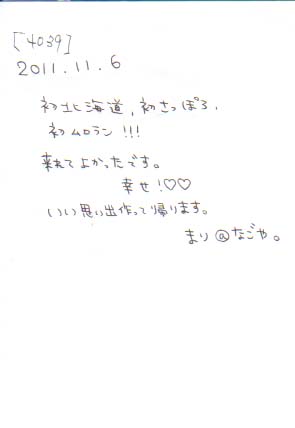 [4039]
2011.11.6
初北海道,初さっぽろ,
初ムロラン!!!
来れてよかったです。
幸せ!♡♡
いい思い出作って帰ります。
まり@なごや。